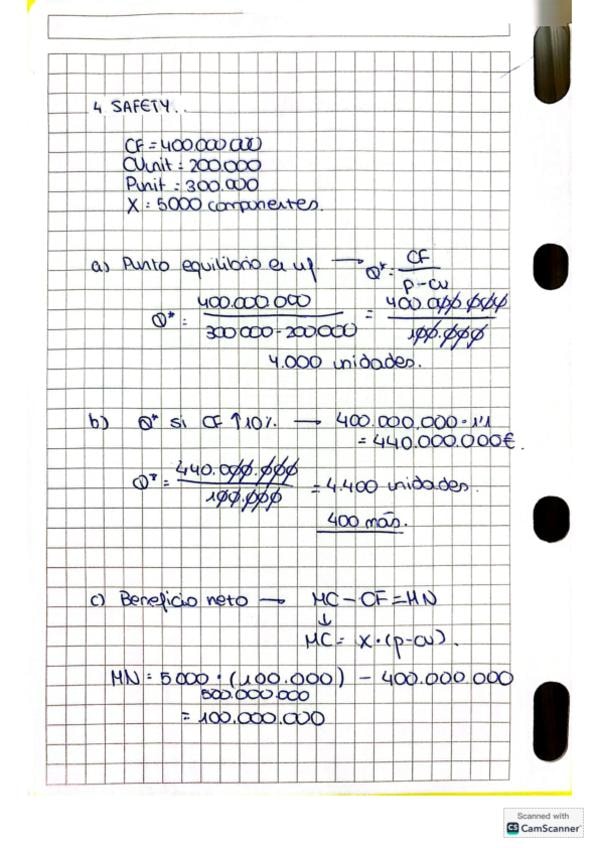 4 SAFETY..
CF = 400.000.000
CVunit = 200.000
Punit = 300.000
X = 5000 componentes.
a) Punto equilibrio en uf → Q* = CF / p-cv
Q* = 400.000.000 / 300000-200000 = 400.000.000 / 100.000
4.000 unidades.
b) Q* si CF ↑10% → 400.000.000 · 1'1
= 440.000.000€.
Q* = 440.000.000 / 100.000 = 4.400 unidades.
400 más.
c) Beneficio neto → MC - CF = MN
↓
MC = X·(p-cv).
MN = 5000 · (100.000) - 400.000.000
500.000.000
= 100.000.000
Scanned with
CS CamScanner